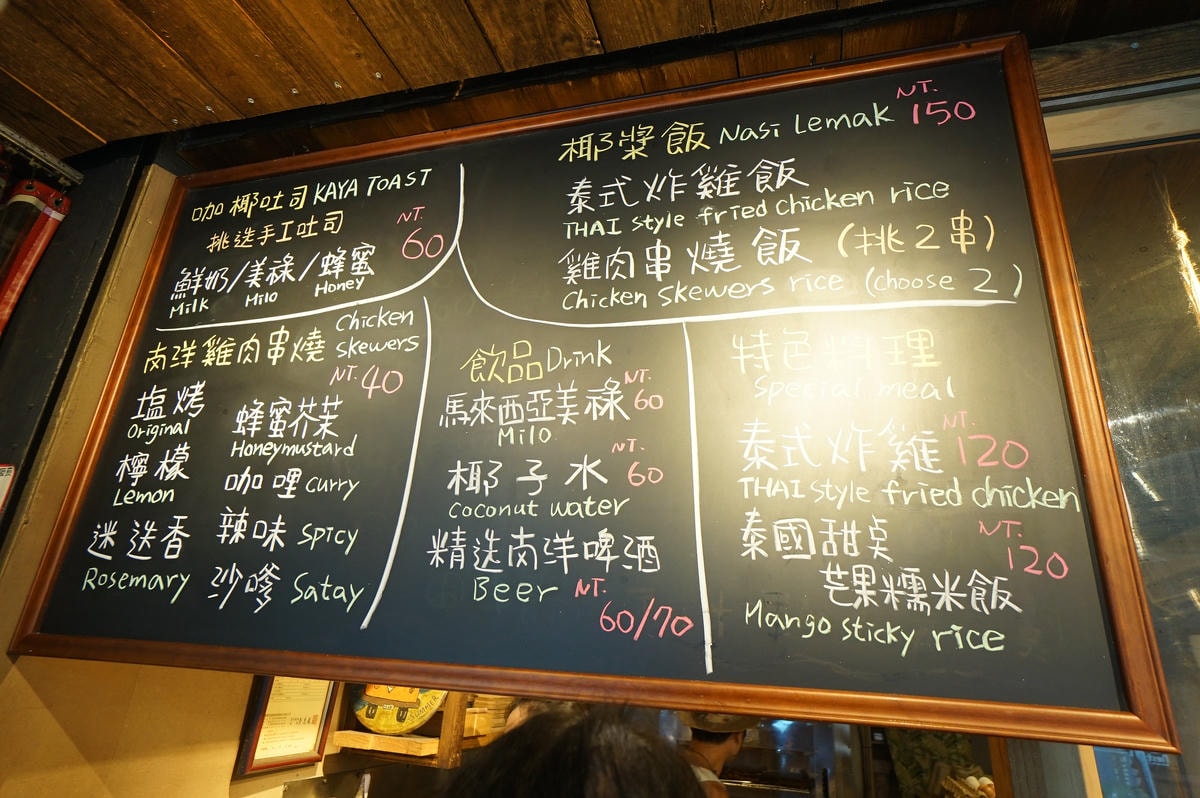 咖椰吐司 KAYA TOAST
挑选手工吐司
NT.
60
鮮奶/美祿/蜂蜜
Milk Milo Honey
椰漿飯 Nasi Lemak NT. 150
泰式炸雞飯
THAI style fried chicken rice
雞肉串燒飯 (挑2串)
Chicken skewers rice (choose 2)
南洋雞肉串燒 Chicken skewers
NT. 40
塩烤
Original
檸檬
Lemon
迷迭香
Rosemary
蜂蜜芥茉
Honeymustard
咖哩 curry
辣味 spicy
沙嗲 Satay
飲品 Drink
馬來西亞美祿 NT. 60
Milo
椰子水 NT. 60
coconut water
精选南洋啤酒
Beer NT.
60/70
特色料理
Special meal
泰式炸雞 NT. 120
THAI style fried chicken
泰國甜桌 NT. 120
芒果糯米飯
Mango sticky rice
SUMMER